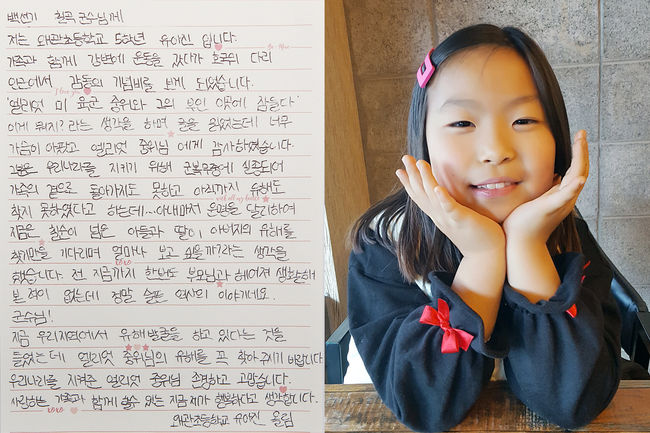 백선기 칠곡 군수님께
저는 왜관초등학교 5학년 유아진 입니다.
가족과 함께 강변에 운동을 갔다가 호국의 다리
인근에서 감동의 기념비를 보게 되었습니다.
I love you
"엘리엇 미 육군 중위와 그의 부인 이곳에 잠들다"
이게 뭐지? 라는 생각을 하며 글을 읽었는데 너무
가슴이 아팠고 엘리엇 중위님 에게 감사하였습니다
그분은 우리나라를 지키기 위해 군복무중에 실종되어
가족의 곁으로 돌아가지도 못하고 아직까지 유해도
with all my heart
찾지 못하였다고 하는데...아내마저 운명을 달리하여
지금은 환순이 넘은 아들과 딸이 아버지의 유해를
찾기만을 기다리며 얼마나 보고 싶을까?라는 생각을
xoxo
했습니다. 전 지금까지 한번도 부모님과 헤어져 생활해
본 적이 없는데 정말 슬픈 역사의 이야기네요.
군수님!
지금 우리지역에서 유해발굴을 하고 있다는 것을
들었는데 엘리엇 중위님의 유해를 꼭 찾아주시기 바랍니다
우리나라를 지켜준 엘리엇 중위님 존경하고 고맙습니다.
사랑하는 가족과 함께 할수 있는 지금 제가 행복하다고 생각합니다.
xoxo
왜관초등학교 유아진 올림